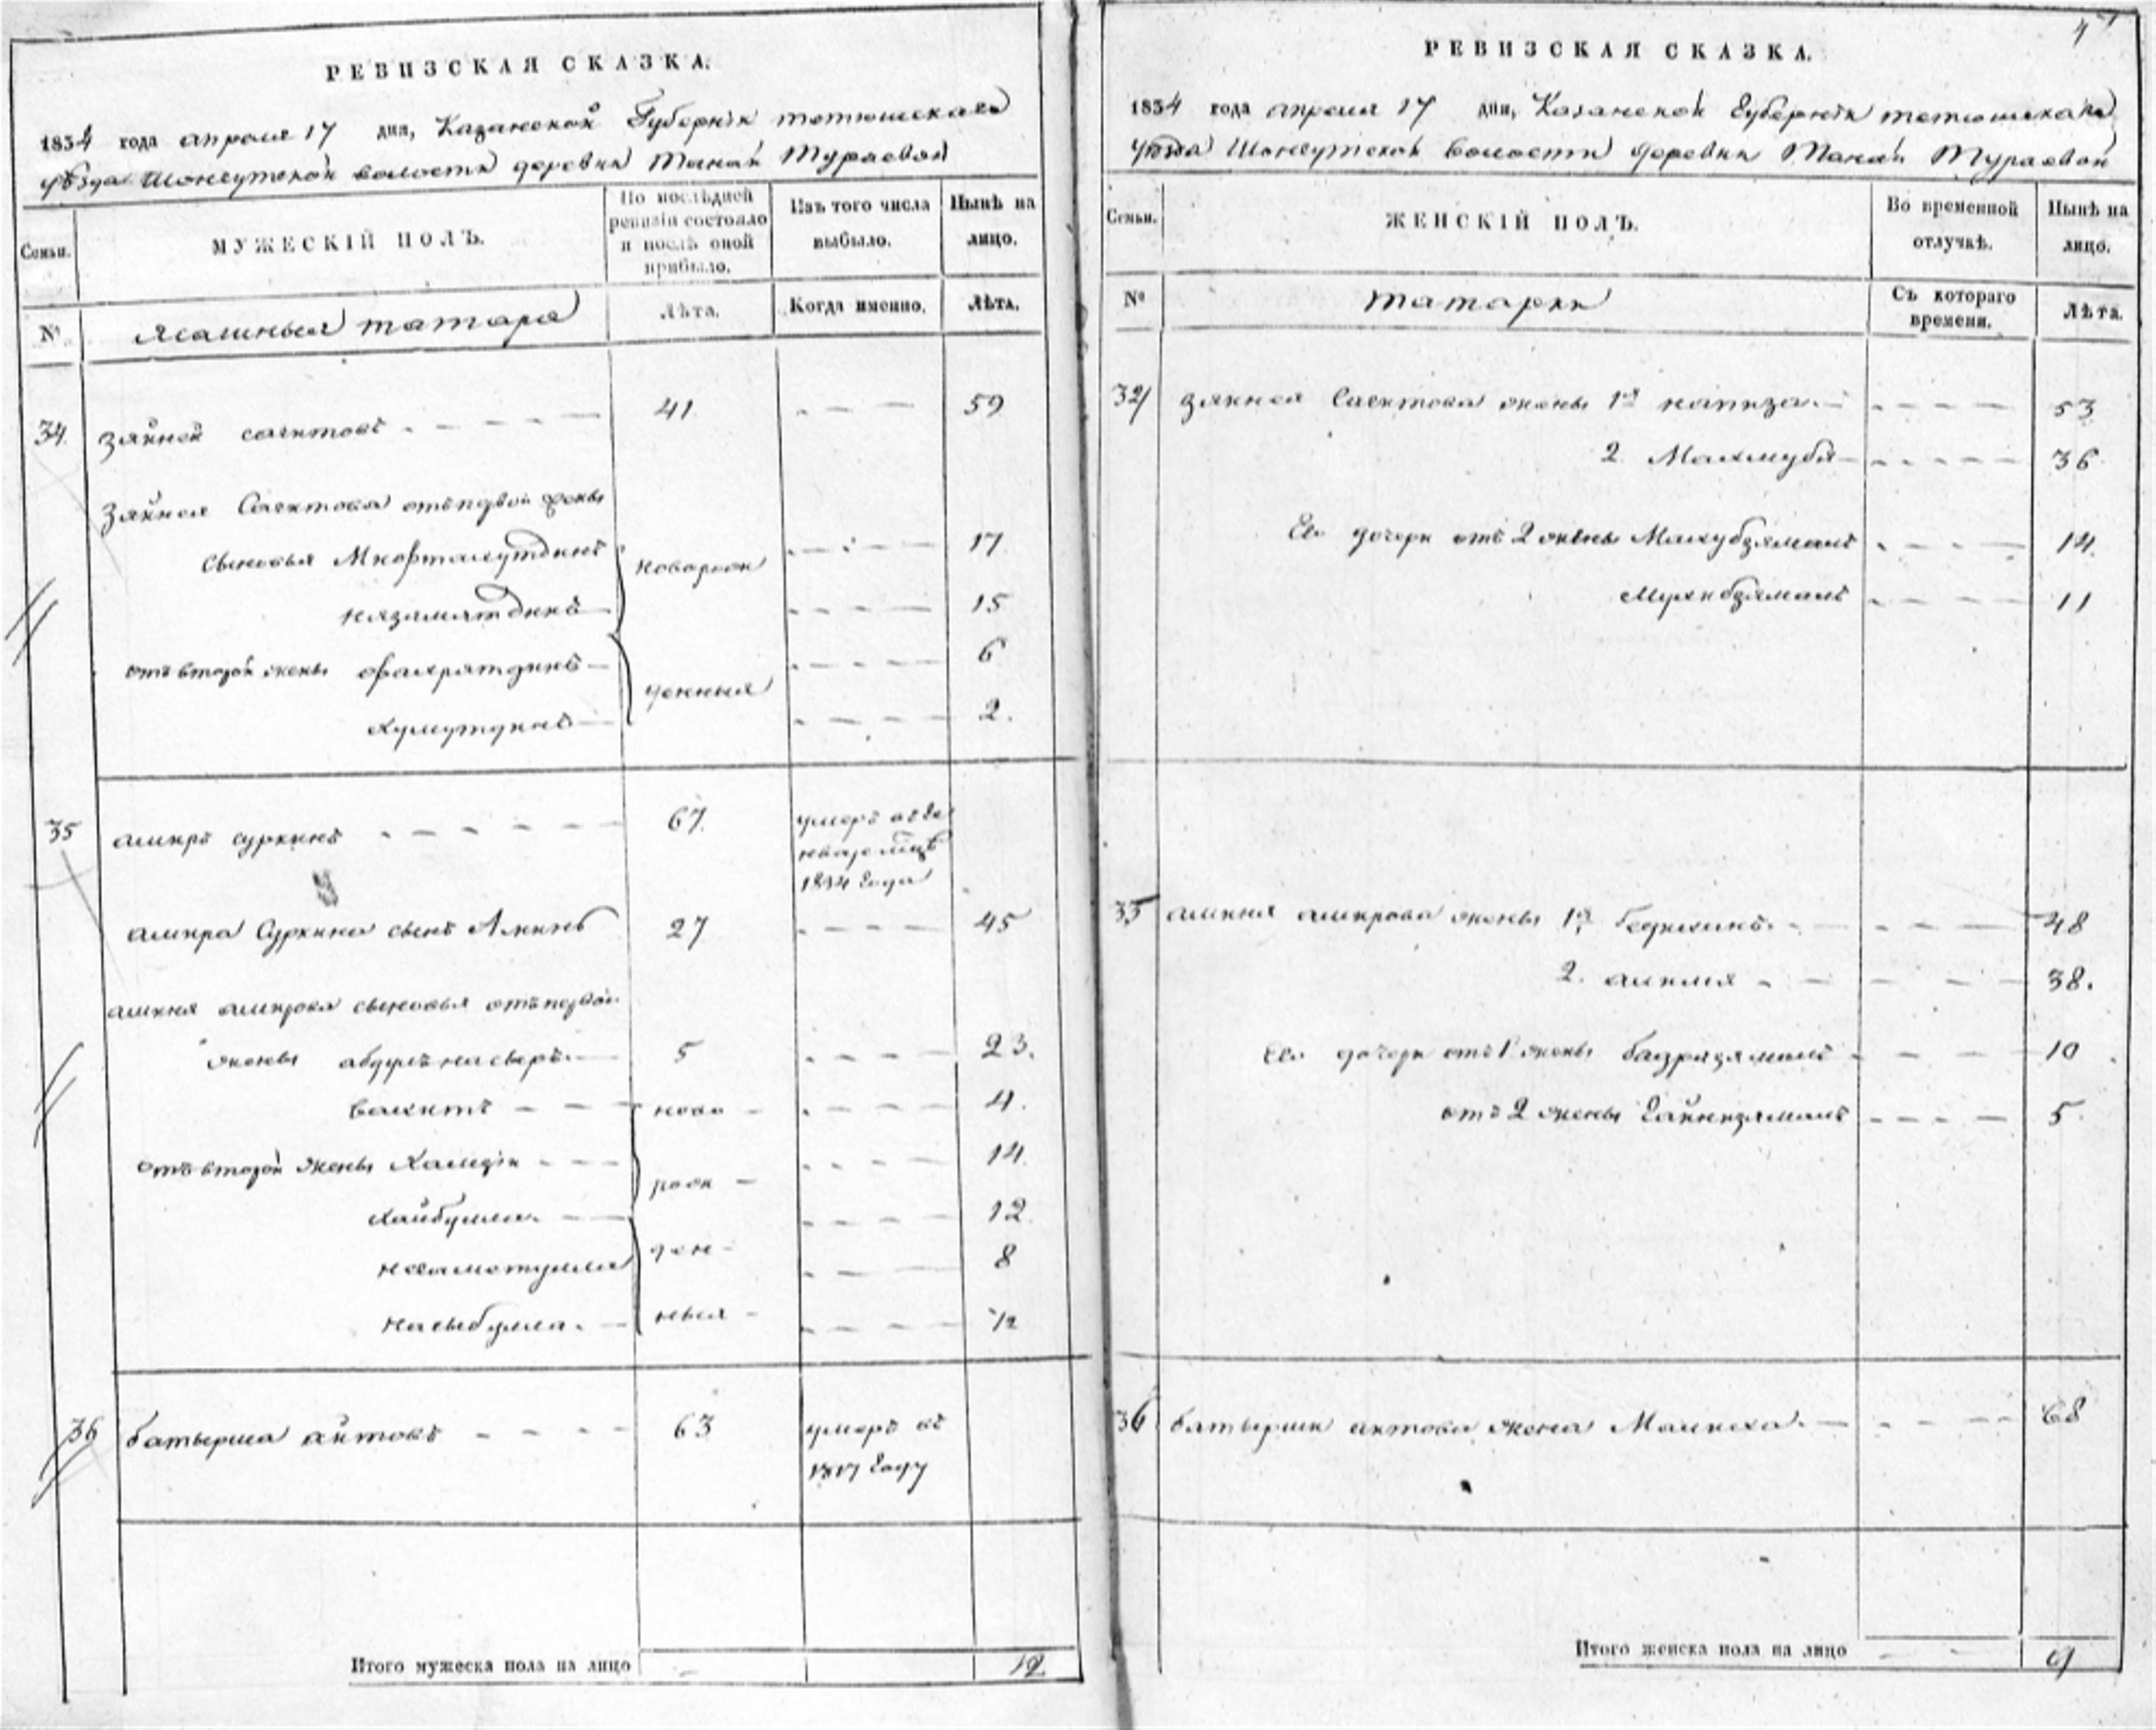 РЕВИЗСКАЯ СКАЗКА.
1834 года апреля 17 дня, Казанской Губернiи тетюшскаго
уѣзда Шонгутской волости деревни Манай Тураевой
Семьи.
МУЖЕСКIЙ ПОЛЪ.
По послѣдней ревизiи состояло и послѣ оной прибыло.
Изъ того числа выбыло.
Нынѣ на лицо.
№
Ясашныя татара
Лѣта.
Когда именно.
Лѣта.
34. Зяйней сагитовъ 41 59
Зяйнея Сагитова отъ первой жены
сыновья новорож 17
15
отъ второй жены Фахрятдинъ 6
денныя
2.
35 амиръ суркинъ 67. умеръ въ ген
варе мцѣ
1834 года
амира Суркина сынъ Аминъ 27 45
аминя амирова сыновья отъ первой
жены абдулъ насыръ 5 23.
Вахитъ ново 4.
отъ второй жены Хамдiи 14
рож
Хайбулла 12
ден
8
насыбулла ныя ½
36 батырша аитовъ 63 умеръ въ
1817 году
Итого мужеска пола на лицо 12
РЕВИЗСКАЯ СКАЗКА.
1834 года апреля 17 дня, Казанской Губернiи тетюшскаго
уѣзда Шонгутской волости деревни Манай Тураевой
Семьи.
ЖЕНСКIЙ ПОЛЪ.
Во временной отлучкѣ.
Нынѣ на лицо.
№
татарки
Съ котораго времени.
Лѣта.
34 Зяйнея Сагитова жены 1я 53
2 Махмубя 36
Его дочери отъ 2 жены Махубзямалъ 14
Мухибзямалъ 11
35 аминя амирова жены 1я 48
2. алимя 38.
Его дочери отъ 1 жены бадрязямалъ 10
отъ 2 жены Гайнизямалъ 5
36 батырши аитова жена 68
Итого женска пола на лицо 9